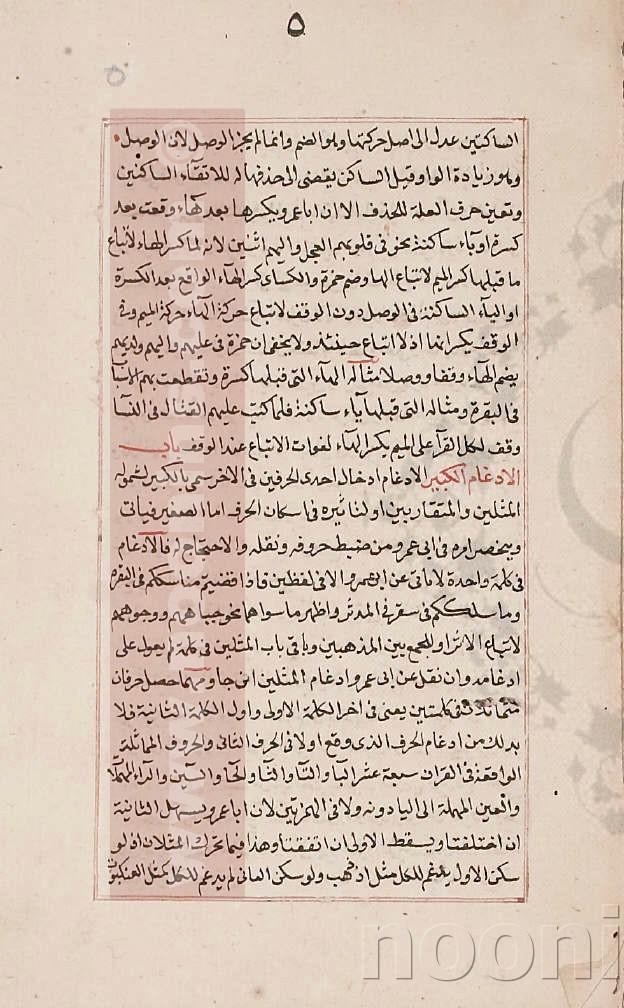 ٥
الساكنين عدل الى اصل حركتها وهو الضم وانما لم يجز الوصل لان الوصل
وهو زيادة الواو قبل الساكن يفضى الى حذفها له لالتقآء الساكنين
وتعين حرف العلة للحذف الا ان ابا عمرو يكسرها بعد هآء وقعت بعد
كسرة او يآء ساكنة نحو فى قلوبهم العجل واليهم اثنين لانه لما كسر الهاء لاتباع
ما قبلها كسر الميم لاتباع الها وضم حمزة والكسائ كسر الهآء الواقع بعد الكسرة
او اليآء الساكنة فى الوصل دون الوقف لاتباع حركة الهآء حركة الميم وفى
الوقف يكسرانها اذ لا اتباع حينئذ ولا يخفى ان حمزة فى عليهم واليهم ولديهم
يضم الهآء وقفا ووصلا مثاله الهآء التى قبلها كسرة وتقطعت بهم الاسباب
فى البقرة ومثاله التى قبلها يآء ساكنة فلما كتب عليهم القتال فى النسا
وقف لكل القرآ على الميم بكسر الهآء لفوات الاتباع عند الوقف باب
الادغام الكبير الادغام ادخال احدى الحرفين فى الاخر سمى بالكبير لشموله
المثلين والمتقاربين او لتاثيره فى اسكان الحرف اما الصغير فياتى
وينحصر امره فى ابى عمرو من ضبط حروفه ونقله والاحتجاج له فالادغام
فى كلمة واحدة لا ياتى عن ابى عمرو الا فى لفظين فاذا قضيتم مناسككم فى البقره
وما سلككم فى سقر فى المدثر واظهر ما سواهما نحو جباههم ووجوههم
لاتباع الاثر او للجمع بين المذهبين وباقى باب المثلين فى كلمة لم يعول على
ادغامه وان نقل عن ابى عمرو ادغام المثلين ان جاو مهما حصل حرفان
متماثلان فى كلمتين يعنى فى اخر الكلمة الاولى واول الكلمة الثانية فلا
بد لك من ادغام الحرف الذى وقع اولا فى الحرف الثانى والحروف المماثلة
الواقعة فى القران سبعة عشر البآ والتآ والثآ والحآ والسين والرآء المهملا
والعين المهملة الى اليا دونه ولا فى الهمزتين لان ابا عمرو يسهل الثانية
ان اختلفتا ويسقط الاولى ان اتفقتا وهذا فيما تحرك المثلان اذ لو
سكن الاول يدغم للكل مثل اذ ذهب ولو سكن الثانى لم يدغم للكل كمثل العنكبوت
noon